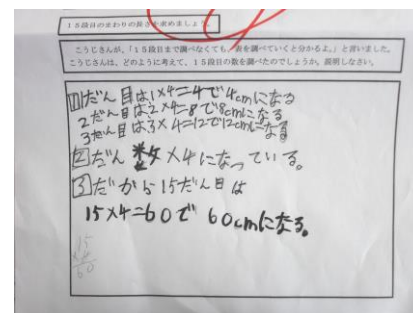 15段目のまわりの長さを求めましょう。
こうじさんが、「15段目まで調べなくても、表を調べていくと分かるよ。」と言いました。
こうじさんは、どのように考えて、15段目の数を調べたのでしょうか。説明しなさい。
1だん目は1×4=4で4cmになる
2だん目は2×4=8で8cmになる
3だん目は3×4=12で12cmになる
2だん数×4になっている。
3だから15だん目は
15×4=60で 60cmになる。
15
×4
60